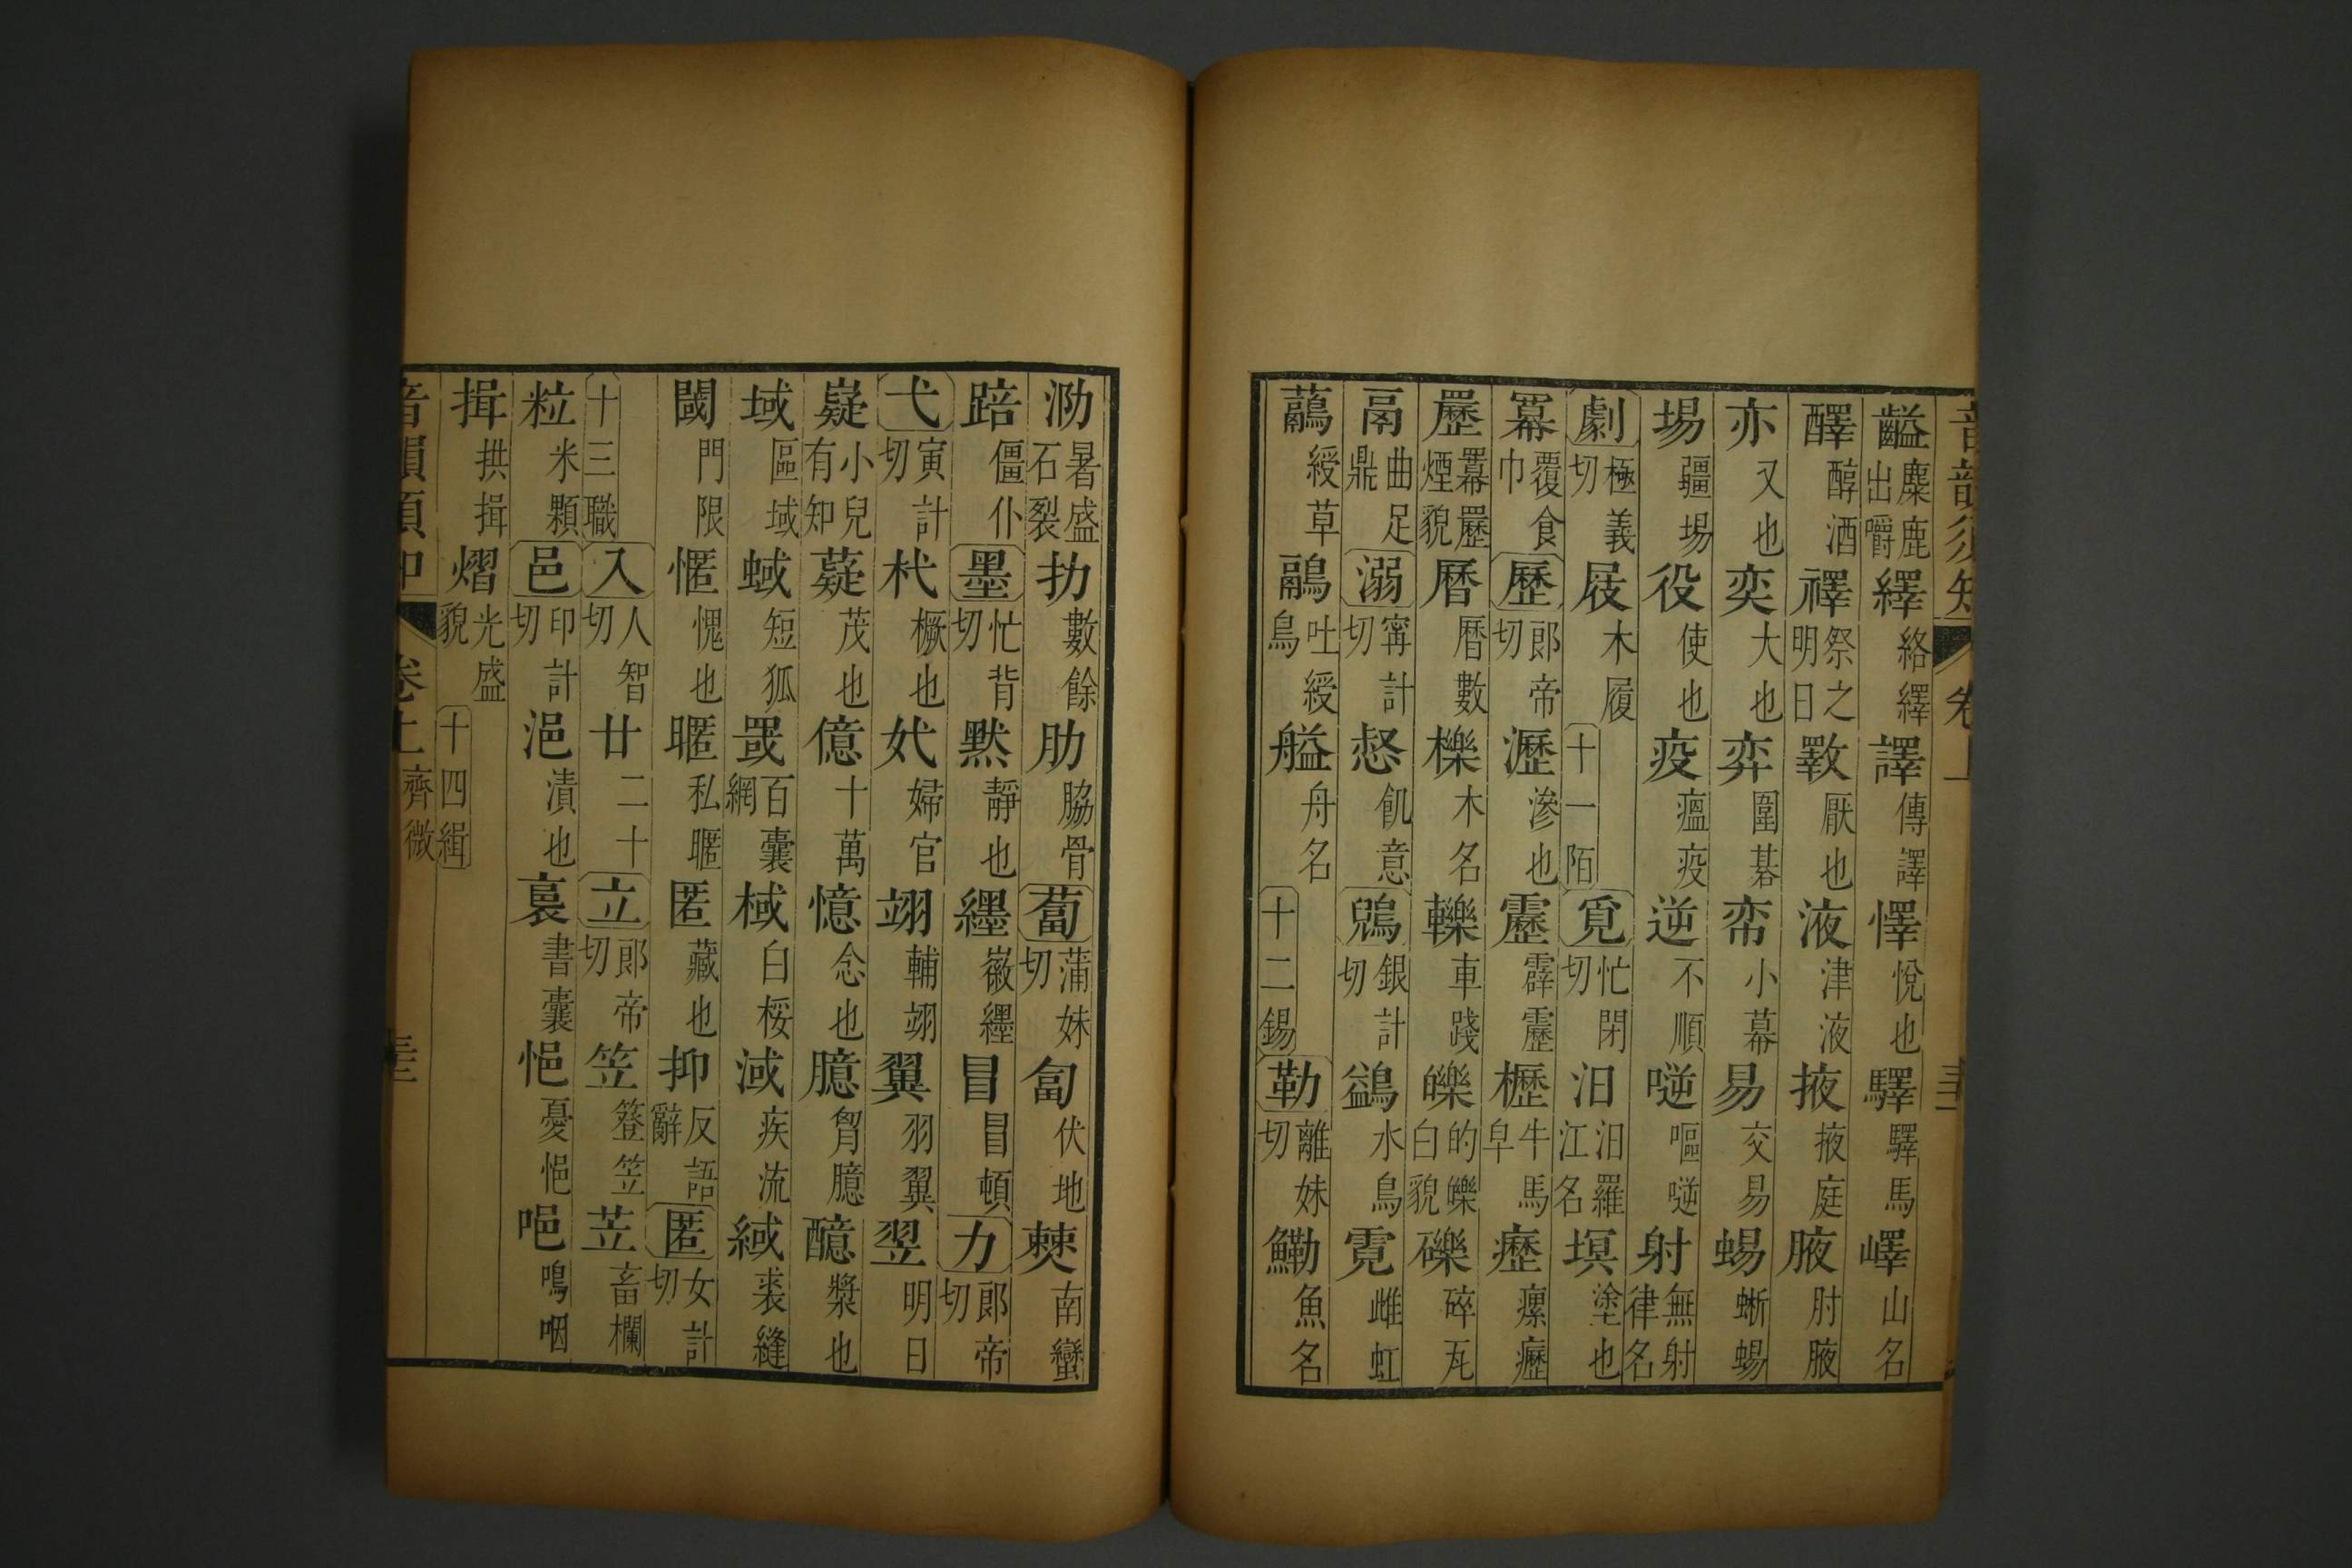 音韻須知 卷上
齸麋鹿出嚼繹絡繹譯傳譯懌悅也驛驛馬嶧山名
醳醇酒禪祭之明日斁厭也液津液掖掖庭腋肘腋
亦又也奕大也弈圍棊帟小幕易交易蜴蜥蜴
埸疆埸役使也疫瘟疫逆不順嗌嘔嗌射無射律名
劇極義切屐木履十一陌覓忙閉切汨汨羅江名塓塗也
冪覆食巾歷郎帝切瀝滲也靂霹靂櫪牛馬皁癧瘰癧
羃羃煙貌曆曆數櫟木名轢車踐皪的皪白貌礫碎瓦
鬲曲足鼎溺甯計切惄飢意鶂銀計切鷁水鳥霓雌虹
虉綬草鷊吐綬鳥艗舟名十二錫勒離妹切鰳魚名
泐暑盛石裂扐數餘肋脇骨蔔蒲妹切匐伏地僰南蠻
踣僵仆墨忙背切默靜也纆徽纆冒冒頓力郎帝切
弋寅計切杙橛也妷婦官翊輔翊翼羽翼翌明日
嶷小兒有知薿茂也億十萬憶念也臆胷臆醷漿也
域區域蜮短狐罭百囊網棫白桵淢疾流緎裘縫
閾門限慝愧也暱私暱匿藏也抑反語辭匿女計切
十三職入人智切廿二十立郎帝切笠簦笠苙畜欄
粒米顆邑印計切浥漬也裛書囊悒憂悒唈嗚咽
揖拱揖熠光盛貌十四緝
音韻須知 卷上 齊微